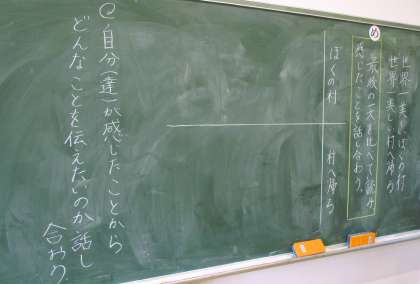 世界一美しいぼくの村
世界一美しい村へ帰る
め
最後の一文を比べて読み、
感じたことを話し合おう。
ぼくの村
村へ帰る
自分(達)が感じたことから
どんなことを伝えたいのか話し
合おう